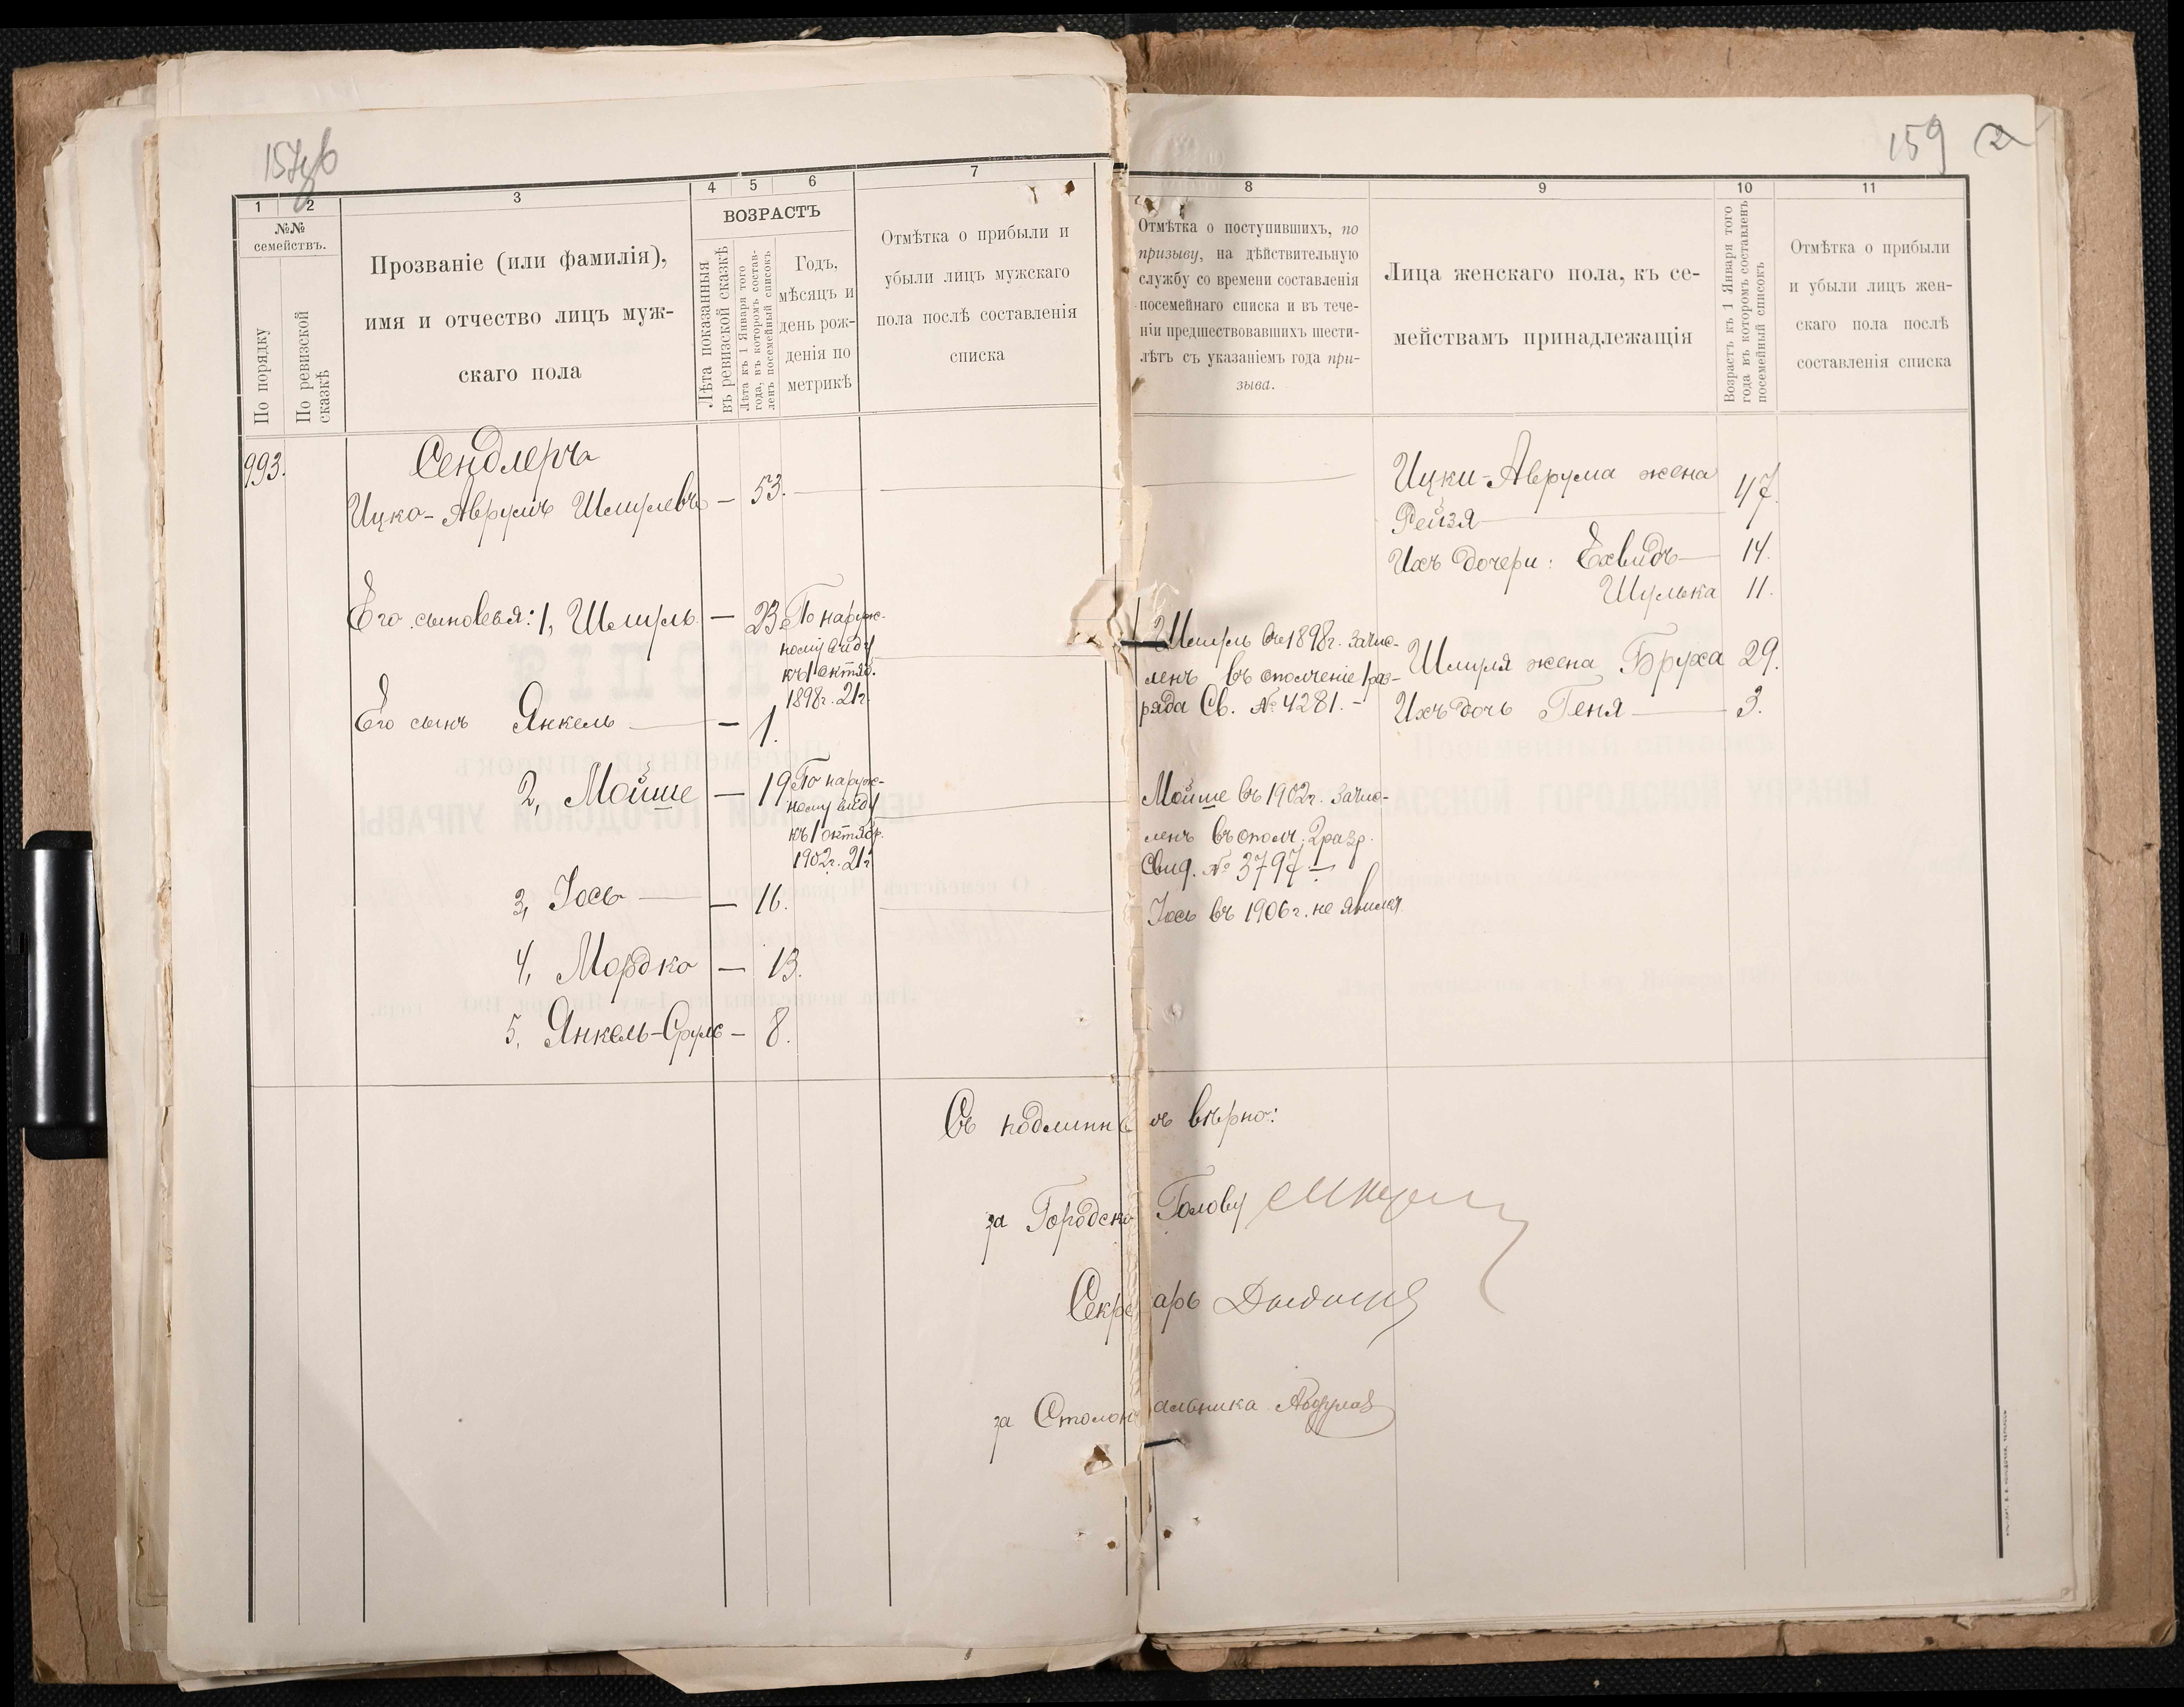 159 2
1 2 3 4 5 6 7 8 9 10 11
№№ семействъ.
По порядку
По ревизской сказкѣ
Прозваніе (или фамилія),
имя и отчество лицъ муж-
скаго пола
ВОЗРАСТЪ
Лѣта показанныя
въ ревизской сказкѣ
Лѣта къ 1 Января того
года, въ которомъ состав-
ленъ посемейный списокъ
Годъ,
мѣсяцъ и
день рож-
денія по
метрикѣ
Отмѣтка о прибыли и
убыли лицъ мужскаго
пола послѣ составленія
списка
Отмѣтка о поступившихъ, по
призыву, на дѣйствительную
службу со времени составленія
посемейнаго списка и въ тече-
ніи предшествовавшихъ шести-
лѣтъ съ указаніемъ года при-
зыва.
Лица женскаго пола, къ се-
мействамъ принадлежащія
Возрастъ къ 1 Января того
года въ которомъ составленъ
посемейный списокъ
Отмѣтка о прибыли
и убыли лицъ жен-
скаго пола послѣ
составленія списка
993.
Сендлеръ
Ицко-Аврумъ Шмулевъ — 53.
Его сыновья: 1, Шмуль — 23
По наруж-
ному виду
къ 1 октяб.
1898г. 21г.
Его сынъ Янкель — 1.
2, Мойше — 19
По наруж-
ному виду
къ 1 октябр.
1902г. 21г
3, Іось — 16.
4, Мордко — 13.
5, Янкель-Сруль — 8.
Шмуль въ 1898г. зачис-
ленъ въ ополченіе 1 раз-
ряда Св. № 4281. -
Мойше въ 1902г. зачис-
ленъ въ ополч. 2 разр.
Свид. № 3797 —
Іось въ 1906г. не явился
Ицки-Аврума жена
Рейзя 47.
Ихъ дочери: Ехвидъ — 14.
Шулька 11.
Шмуля жена Бруха 29.
Ихъ дочь Геня — 3.
Съ подлинн ъ вѣрно:
за Городско Голову
Секре арь
за Столон альника